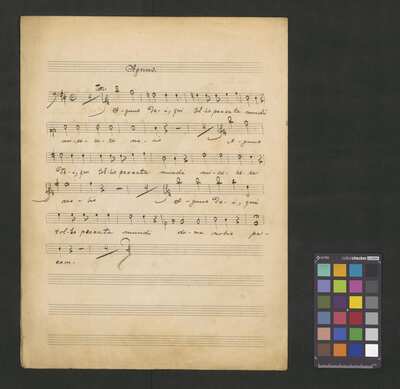 Agnus.
A-gnus De-i, qui tol-lis peccata mundi
mi-se-re-re no-bis A-gnus
De-i, qui tol-lis peccata mundi mi-se-re-re
no-bis A-gnus De-i, qui
tol-lis peccata mundi do-na nobis pa-
cem.